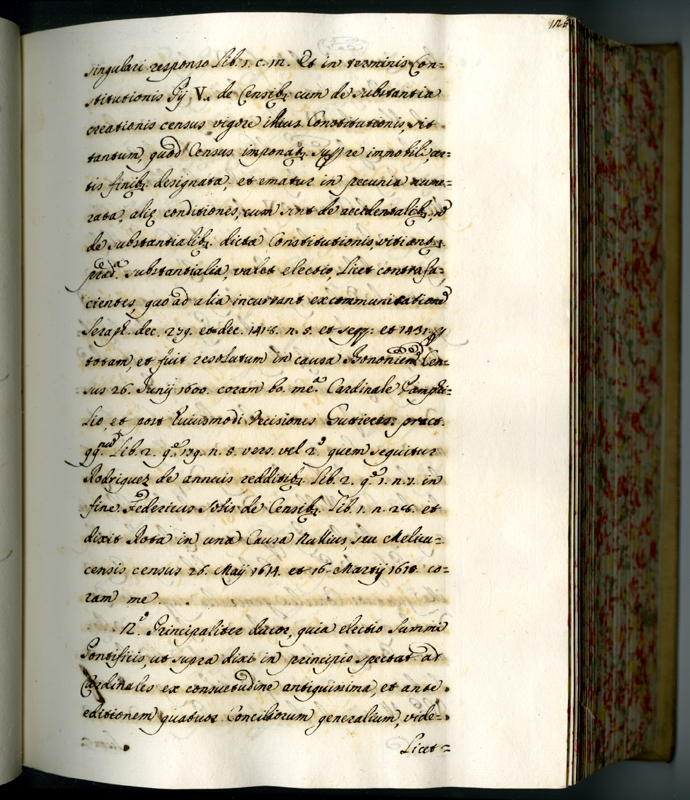 singulari responso lib. 1. c. m. Et in terminis Con=
stitutionis Pij V. de Censibq cum de substantia
creationis census vigore illius Constitutionis, sit
tantum, quod Census imponatq super re immobili, cer=
tis finibq designata, et ematur in pecunia nume=
rata, aliq conditiones, cum sint de accidentalibq, nõ
de substantialibq dictæ Constitutionis, vitiantq,
præd.ª substantialia, valet electio, licet contrafa=
cientes, quo ad alia incurrant excommunicationẽ
Seraph. dec. 279. et dec. 1418. n. 5. et seqq: et 1431. p
totam, et fuit resolutum in causa Bononien Cen=
sus 26. Junij 1600. coram bo. me.ª Cardinale Pamphi=
lio, et post huiusmodi Decisionis Gutierez: pract.
qq. lib. 2. q.º 179. n. 5. vers. vel 2.º quem sequitur
Rodriguez de annuis redditibq lib. 2. q.º 1. n. 7. in
fine Federicus Sotis de Censibq lib. 1. n. 28. et
dixit Rota in una Causa Nullius, seu Meliu=
censis census 26. Maij 1614. et 16. Martij 1618. co=
ram me.
12.º Principaliter ducor, quia electio Summi
Pontificis, ut supra dixi in principio spectat ad
Cardinales ex consuetudine antiquissima, et ante
editionem quatuor Conciliorum generalium, vide=
licet=